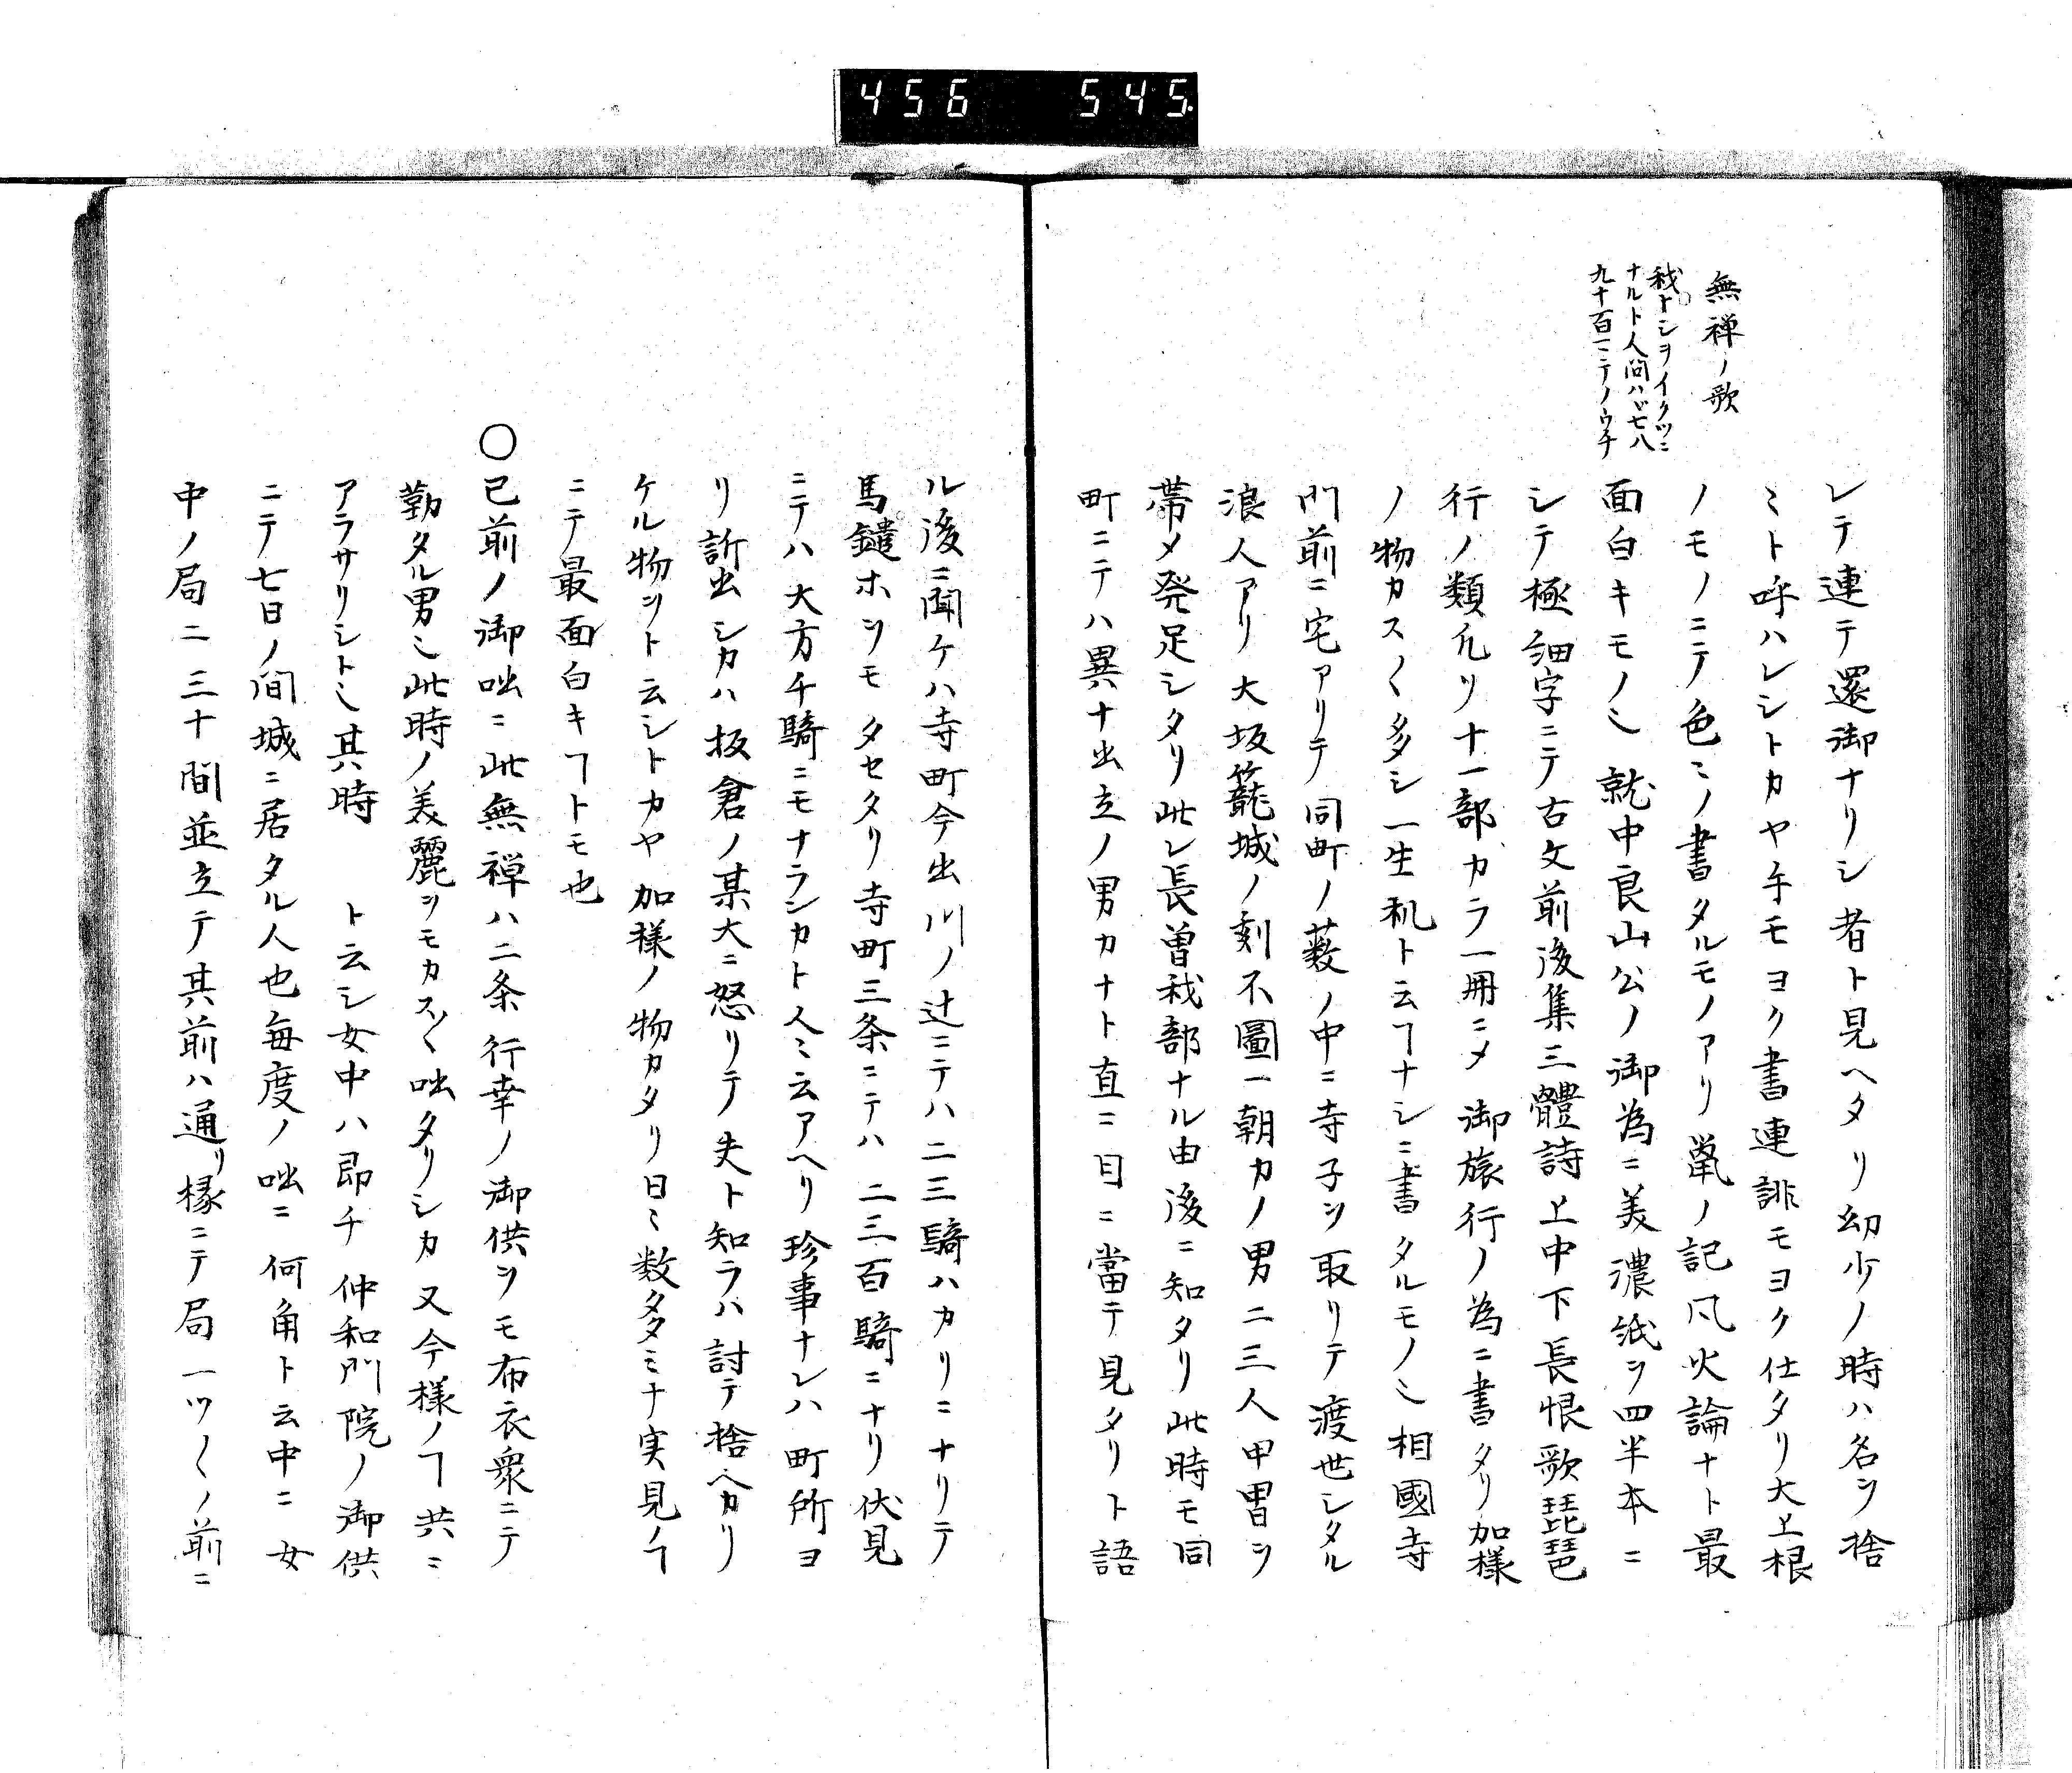 456 545.
無禅ノ歌
我トシヲイクツニ
ナルト人問ハヾ七八
九十百ニテノウチ
レテ連テ還御ナリシ者ト見ヘタリ幼少ノ時ハ名ヲ捨
ミト呼ハレシトカヤ手モヨク書連誹モヨク仕タリ大上根
ノモノニテ色ミノ書タルモノアリ ノ記凩火論ナト最
面白キモノ也就中良山公ノ御為ニ美濃紙ヲ四半本ニ
シテ極細字ニテ古文前後集三體詩上中下長恨歌琵琶
行ノ類凡ソ十一部カラ一冊ニメ御旅行ノ為ニ書タリ加様
ノ物カス〱多シ一生机ト云ヿナシニ書タルモノ也相國寺
門前ニ宅アリテ同町ノ薮ノ中ニ寺子ヲ取リテ渡世シタル
浪人アリ大坂篭城ノ刻不圖一朝カノ男二三人甲冑ヲ
帯メ発足シタリ此レ長曽我部ナル由後ニ知タリ此時モ同
町ニテハ異ナ出立ノ男カナト直ニ目ニ當テ見タリト語
ル後ニ聞ケハ寺町今出川ノ辻ニテハ二三騎ハカリニナリテ
馬鑓ホンモタセタリ寺町三条ニテハ二三百騎ニナリ伏見
ニテハ大方千騎ニモナランカト人ミ云アヘリ珍事ナレハ町所ヨ
リ訴出シカハ板倉ノ某大ニ怒リテ夫ト知ラハ討テ捨ヘカリ
ケル物ヲト云シトカヤ加様ノ物カタリ日ミ数多ミナ実見ノヿ
ニテ最面白キヿトモ也
〇已前ノ御咄ニ此無禅ハ二条行幸ノ御供ヲモ布衣衆ニテ
勤タル男也此時ノ美麗ヲモカス〲咄タリシカ又今様ノヿ共ニ
アラサリシト也其時 ト云シ女中ハ即チ仲和門院ノ御供
ニテ七日ノ間城ニ居タル人也毎度ノ咄ニ何角ト云中ニ女
中ノ局二三十間並立テ其前ハ通リ椽ニテ局一ツ〱ノ前ニ